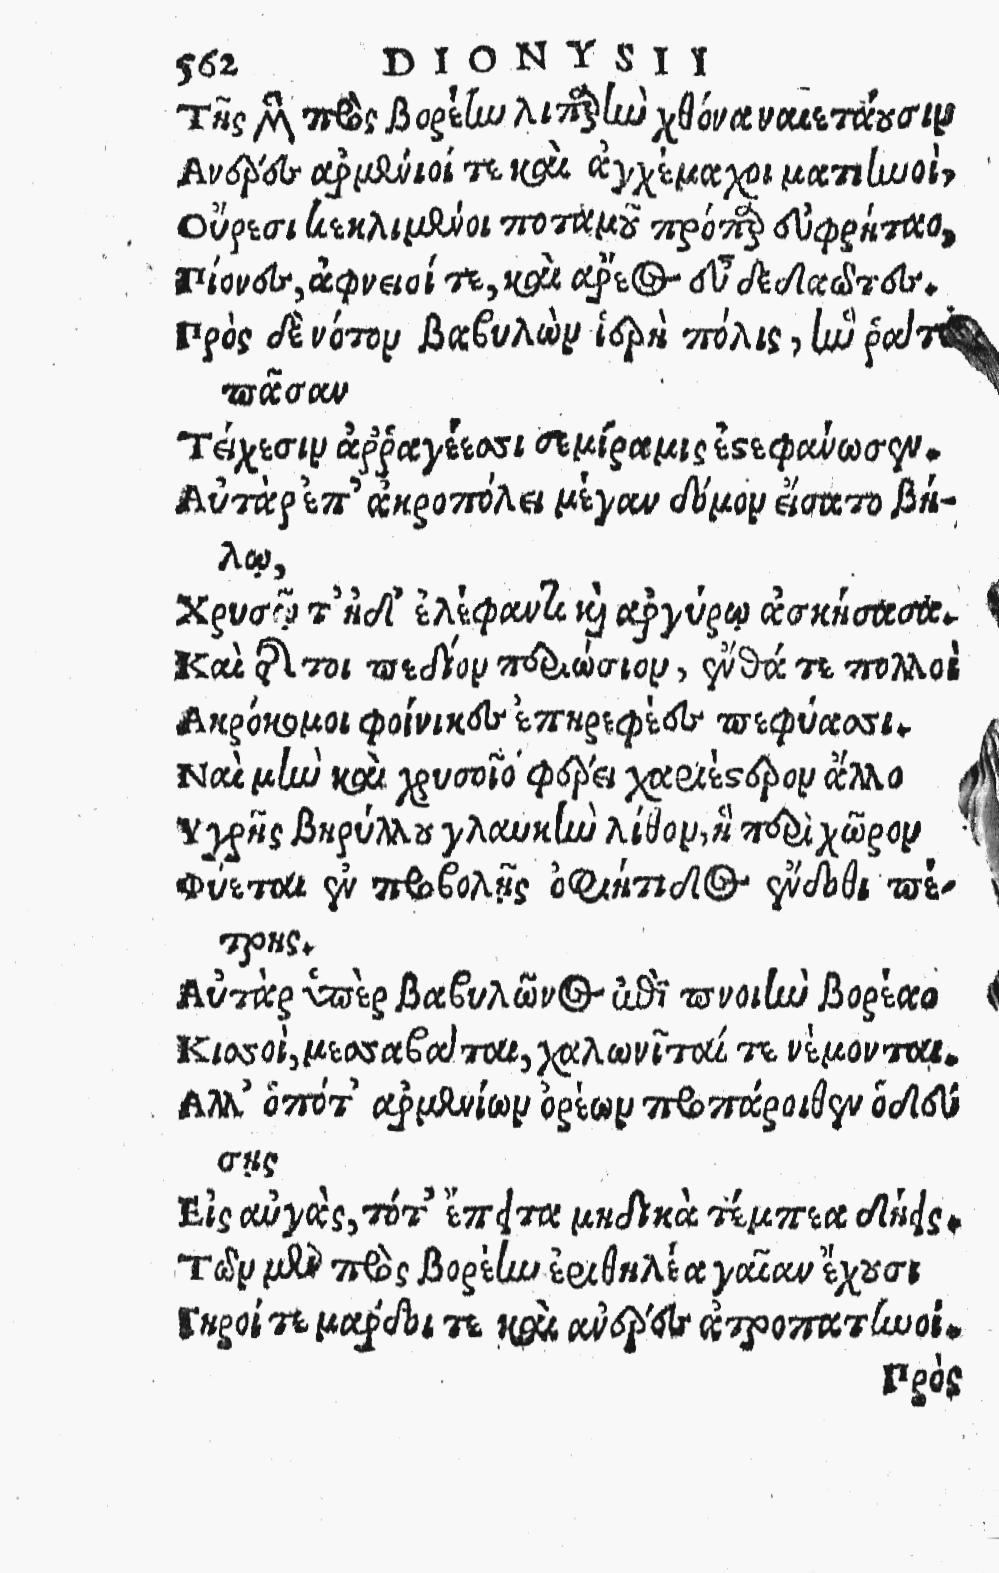 562 DIONYSII
Τῆς δ' ἤτοι πρὸς βορέην λιπαρὴν χθόνα ναιετάουσιν
Ἀνδρες ἀρμένιοί τε καὶ ἀγχέμαχοι ματιηνοὶ,
Οὔρεσι κεκλιμένοι ποταμοῦ πρόπαρ εὐφρήταο,
Πίονες, ἀφνειοί τε, καὶ ἄρεος εὖ δεδαῶτες.
Πρὸς δὲ νότον βαβυλὼν ἱερὴ πόλις, ἣν ῥά τε
πᾶσαν
Τείχεσιν ἀῤῥαγέεσσι σεμίραμις ἐστεφάνωσεν.
Αὐτὰρ ἐπ' ἀκροπόλει μέγαν δόμον εἵσατο βή-
λῳ,
Χρυσῷ τ' ἠδ' ἐλέφαντι καὶ ἀργύρῳ ἀσκήσασα.
Καὶ τοι πεδίον περιώσιον, ἔνθά τε πολλοὶ
Ἀκρόκομοι φοίνικες ἐπηρεφέες πεφύασσι.
Ναὶ μὴν καὶ χρυσοῖο φέρει χαριέστερον ἄλλο
Ὑγρῆς βηρύλλου γλαυκὴν λίθον, ἣ περὶ χῶρον
Φύεται ἐν προβολῇς ὀφιήτιδος ἔνδοθι πέ-
τρης.
Αὐτὰρ ὑπὲρ βαβυλῶνος ἐπὶ πνοιὴν βορέαο
Κισσοὶ, μεσσαβάται, χαλωνῖταί τε νέμονται.
Ἀλλ' ὁπότ' ἀρμενίων ὀρέων προπάροιθεν ὁδεύ
σῃς
Εἰς αὐγὰς, τότ' ἔπειτα μηδικὰ τέμπεα δήεις.
Τῶν μὲν πρὸς βορέην ἐριθηλέα γαῖαν ἔχουσι
Γηροί τε μαρδοί τε καὶ ἀνέρες ἀτροπατηνοί.
Πρὸς